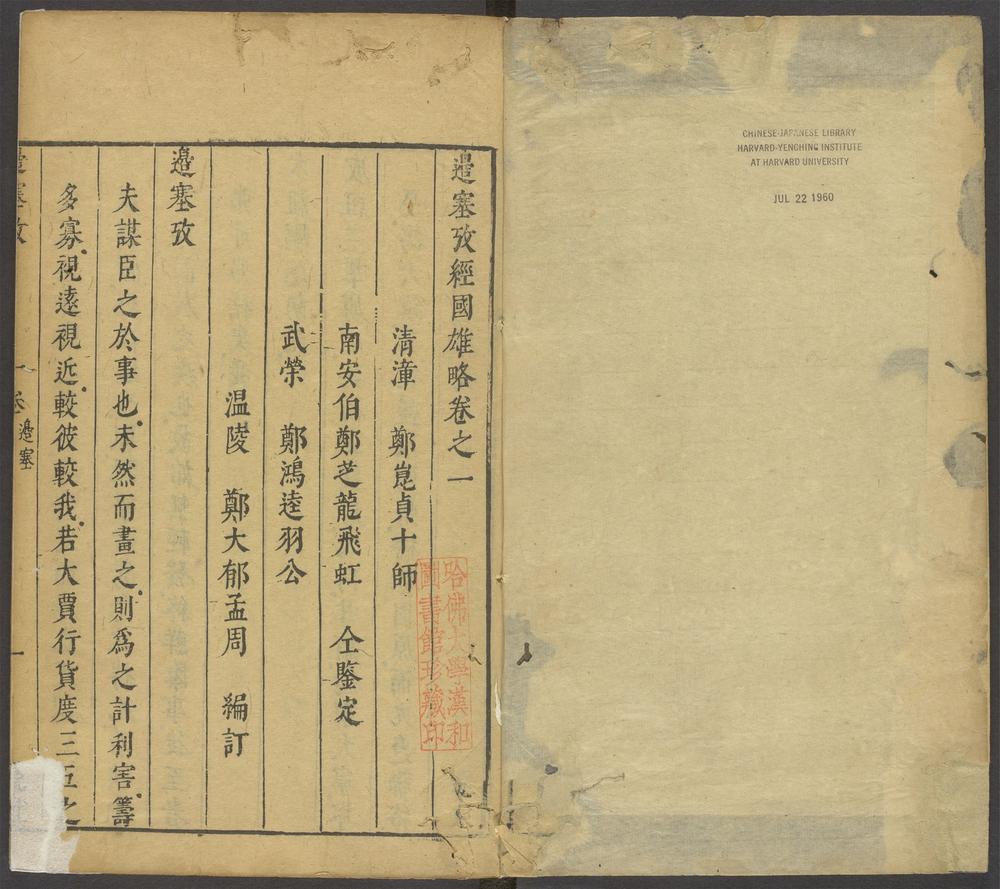 CHINESE-JAPANESE LIBRARY
HARVARD-YENCHING INSTITUTE
AT HARVARD UNIVERSITY
JUL 22 1960
邉塞攷經國雄略卷之一
清漳 鄭崑貞十師
南安伯鄭芝龍飛虹 仝鑒定
武榮 鄭鴻逵羽公
温陵 鄭大郁孟周 編訂
邉塞攷
夫謀臣之於事也未然而畫之則爲之計利害籌
多寡視遠視近較彼較我若大賈行貨度三五之
邉塞攷 卷 邉塞 一
哈佛大學漢和
圖書館珍藏印